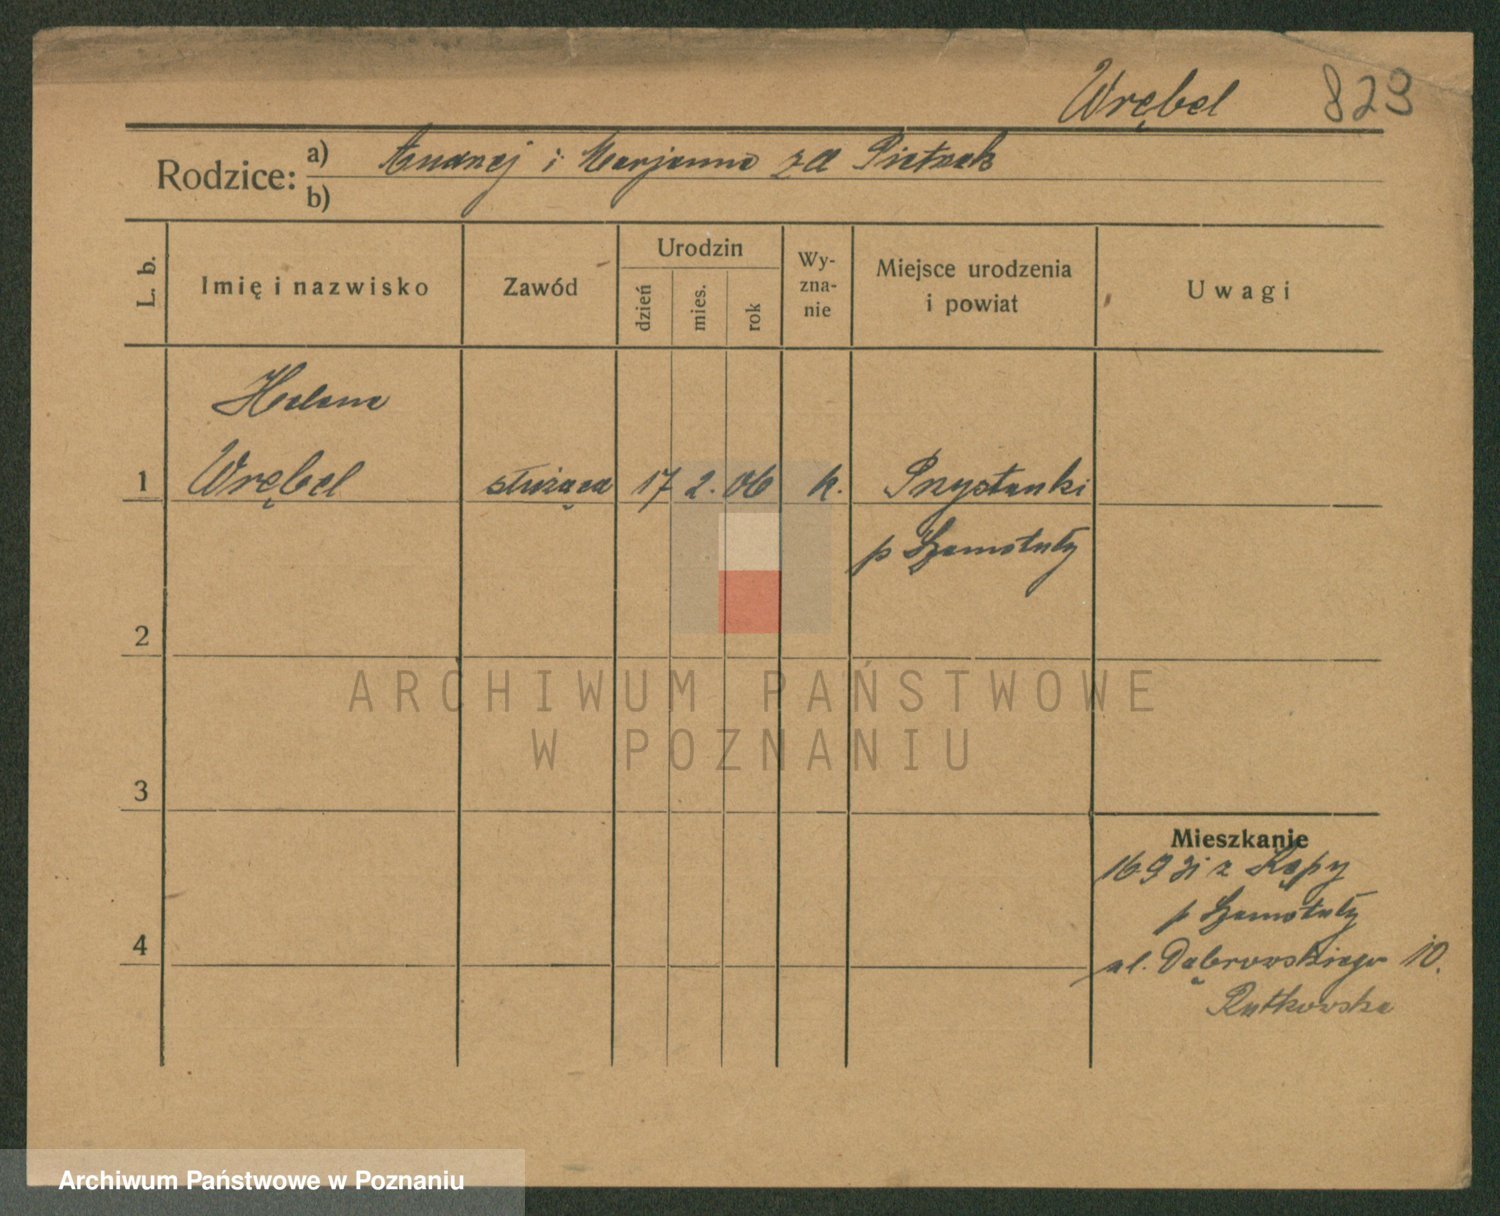 Wrębel 829
Rodzice: a) Andrzej i Marjanna zd Pietrzak
b)
L. b.
Imię i nazwisko
Zawód
Urodzin
dzień
mies.
rok
Wy-
zna-
nie
Miejsce urodzenia
i powiat
Uwagi
Helena
1 Wrębel służąca 17 2. 06 k. Przystanki
p Szamotuły
2
3
4
Mieszkanie
z Kępy
p Szamotuły
ul. Dąbrowskiego 10.
Rutkowska
ARCHIWUM PAŃSTWOWE
W POZNANIU
Archiwum Państwowe w Poznaniu